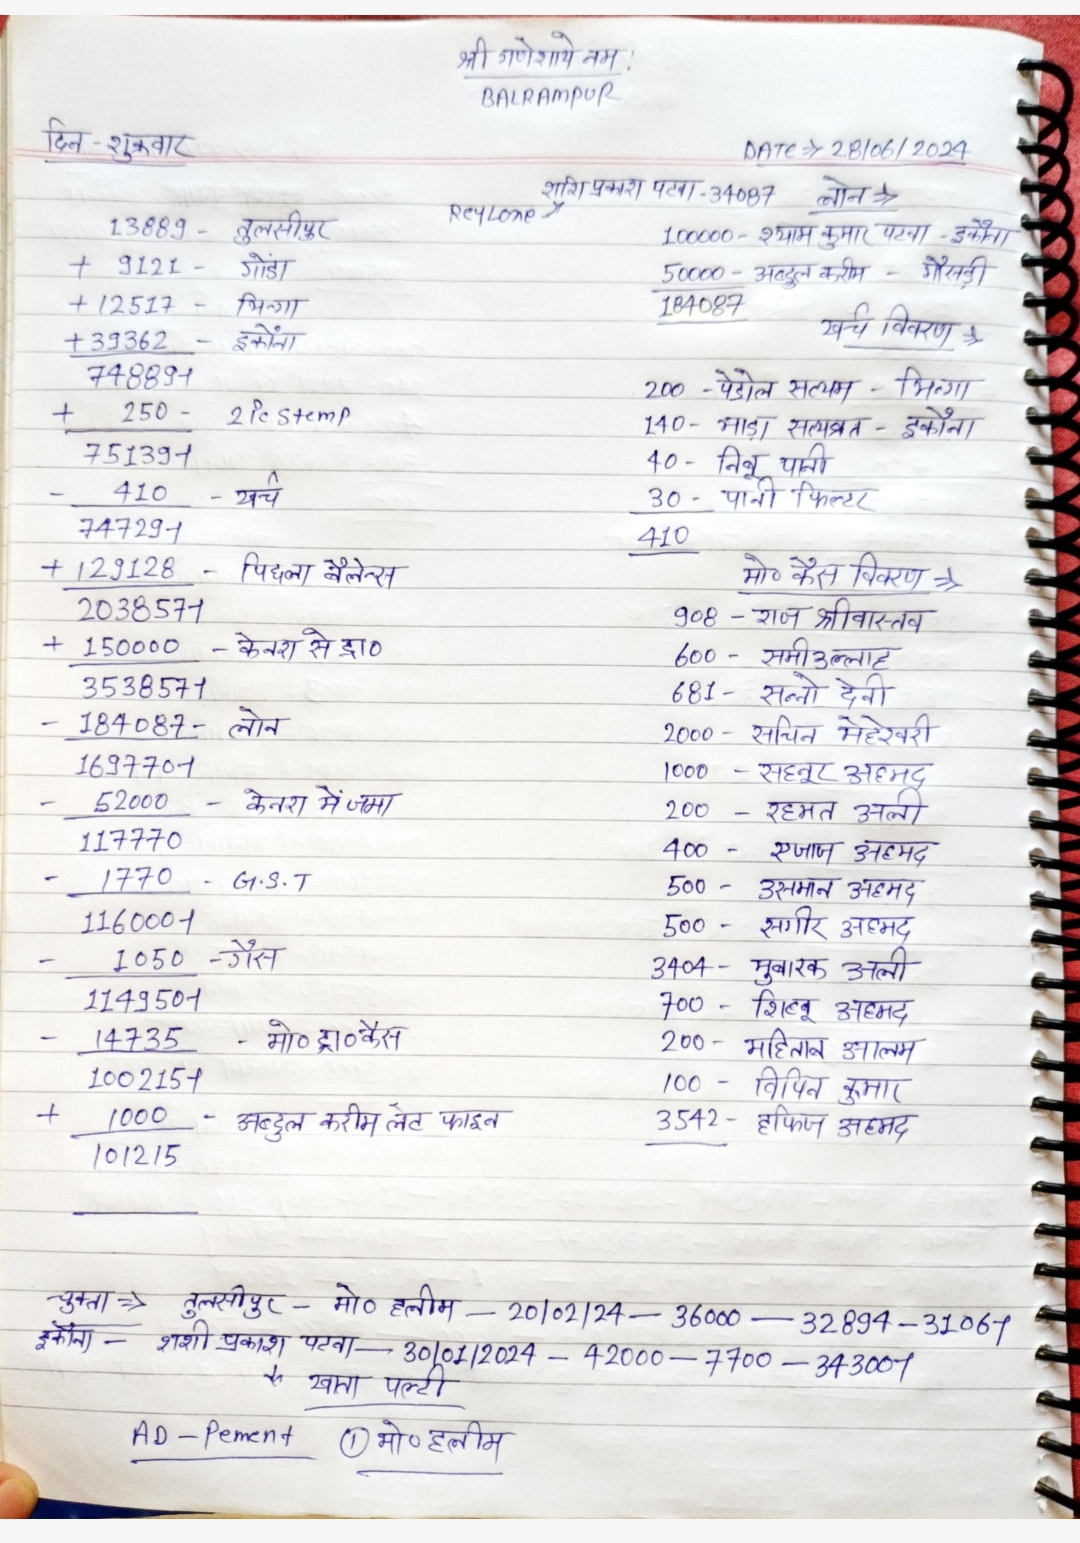 श्री गणेशाये नमः
BALRAMPUR
दिन - शुक्रवार
DATE ⇒ 28/06/2024
शशि प्रकाश पटवा - 34087 लोन ⇒
ReyLone
13889 - तुलसीपुर
+ 9121 - गोंडा
+ 12517 - भिन्गा
+ 39362 - इकौना
74889-1
+ 250 - 2 Pc Stemp
75139-1
- 410 - खर्च
74729-1
+ 129128 - पिछला बैलेन्स
203857-1
+ 150000 - केनरा से ड्रा०
353857-1
- 184087 - लोन
169770-1
- 52000 - केनरा में जमा
117770
- 1770 - G.S.T
116000-1
- 1050 - गैस
114950-1
- 14735 - मो० ड्रा० कैस
100215-1
+ 1000 - अब्दुल करीम लेट फाइन
101215
100000 - श्याम कुमार पटवा - इकौना
50000 - अब्दुल करीम - गैसड़ी
184087
खर्च विवरण ⇒
200 - पेट्रोल सत्यम - भिन्गा
140 - भाड़ा सत्यव्रत - इकौना
40 - निबू पानी
30 - पानी फिल्टर
410
मो० कैस विवरण ⇒
908 - राज श्रीवास्तव
600 - समीउल्लाह
681 - सन्नो देवी
2000 - सचिन मेहेश्वरी
1000 - सहनूर अहमद
200 - रहमत अली
400 - एजाज अहमद
500 - उसमान अहमद
500 - सगीर अहमद
3404 - मुबारक अली
700 - शिब्बू अहमद
200 - महिताब आलम
100 - विपिन कुमार
3542 - हफिज अहमद
चुक्ता ⇒ तुलसीपुर - मो० हलीम - 20/02/24 - 36000 - 32894 - 3106-1
इकौना - शशी प्रकाश पटवा - 30/01/2024 - 42000 - 7700 - 34300-1
खाता पल्टी
AD - Pement ① मो० हलीम